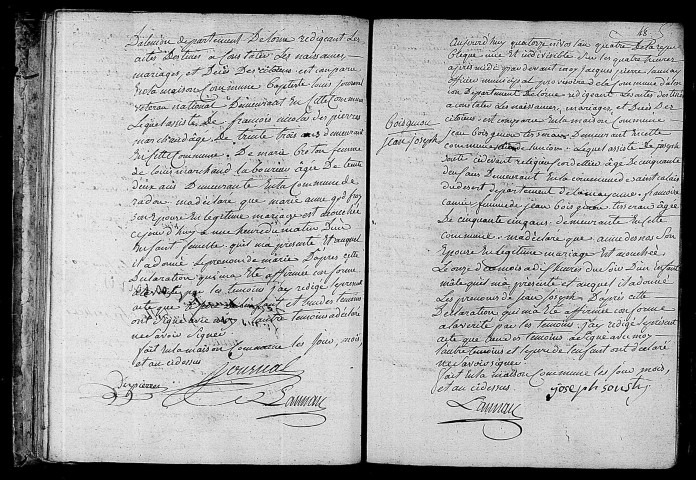 Dalençon departement De l'orne redigeant Les
actes Destinés a Constater Les naissances,
mariages, et Décès Des Citoiens est comparu
En la maison Commune Baptiste Louis Journal
veteran national Demeurant En cette Commune
Lequel assisté de françois nicolas des pierres
marchand âgé De trente trois ans demeurant
En cette Commune. De marie breton femme
de Louis marchand laboureur âgée De trente
deux ans Demeurante En la Commune de
radon, m'a déclaré que marie anne
son Epouse En legitime mariage est accouchée
ce jour D'huy a une heure du matin D'un
Enfant femelle qui m'a presenté Et auquel
il a donné Le prenom de marie D'après cette
Declaration qui m'a Eté affirmée conforme
a la verité par les temoins j'ay rédigé le present
acte que Et un des temoins
ont Signé avec moy L'autre temoins a déclaré
ne Savoir Signer
fait En la maison Commune les jour, mois,
et an cidessus
Journal
Despierres
Launai
48
Aujourd'huy quatorze nivos l'an quatre de la repu-
blique une et indivisible Sur les quatre heures
après midi pardevant moy Jacques pierre Launay
officier municipal provisoire de la Commune d'alen-
çon Departement De l'orne redigeant Les actes destinés
a constater Les naissances, mariages, et Décès Des
citoiens est comparu En la maison Commune
boisguon
jean joseph
jean bois guon Demeurant En cette
commune Lequel assisté de joseph
cidevant religieux Cordellier âgé De cinquante
deux ans Demeurant En la Commune de Saint Calais
du desert departement de la mayenne, francoise
femme de jean bois tisseran âgée
De cinquante cinq ans, demeurante En cette
commune, m'a déclaré que anne Son
Epouse En legitime mariage Est accouchée
Le onze de ce mois a dix heures du Soir D'un Enfant
male qui m'a presenté et auquel il a donné
Les prenoms de jean joseph D'après cette
Declaration qui m'a Eté affirmée conforme
a la verité par les temoins, j'ay rédigé le present
acte que L'un des temoins a Signé avec moy
L'autre temoins et le pere de L'enfant ont déclaré
ne Savoir Signer
fait En la maison Commune Les jour mois,
et an cidessus
joseph
Launai